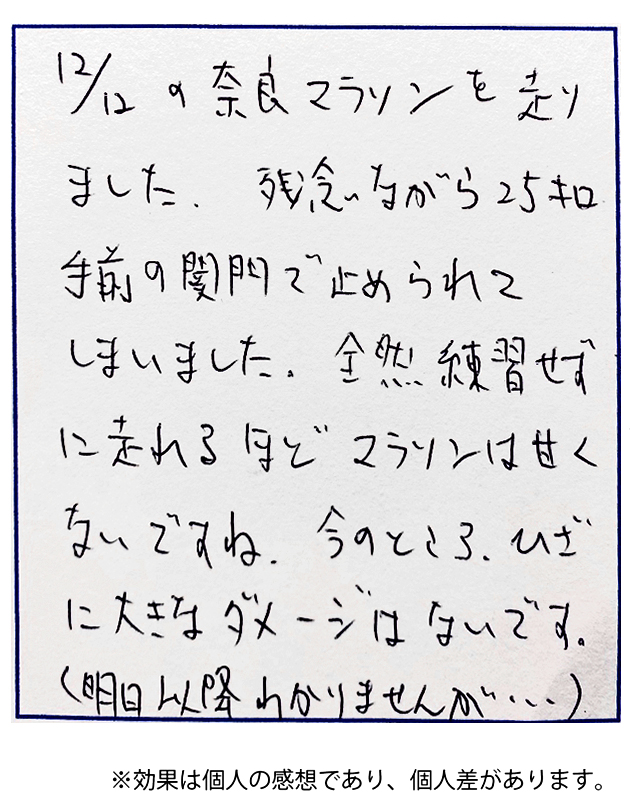 12/12の奈良マラソンを走り
ました. 残念ながら25キロ
手前の関門で止められて
しまいました。全然練習せず
に走れるほどマラソンは甘く
ないですね. 今のところ、ひざ
に大きなダメージはないです。
(明日以降わかりませんが・・・)
※効果は個人の感想であり、個人差があります。